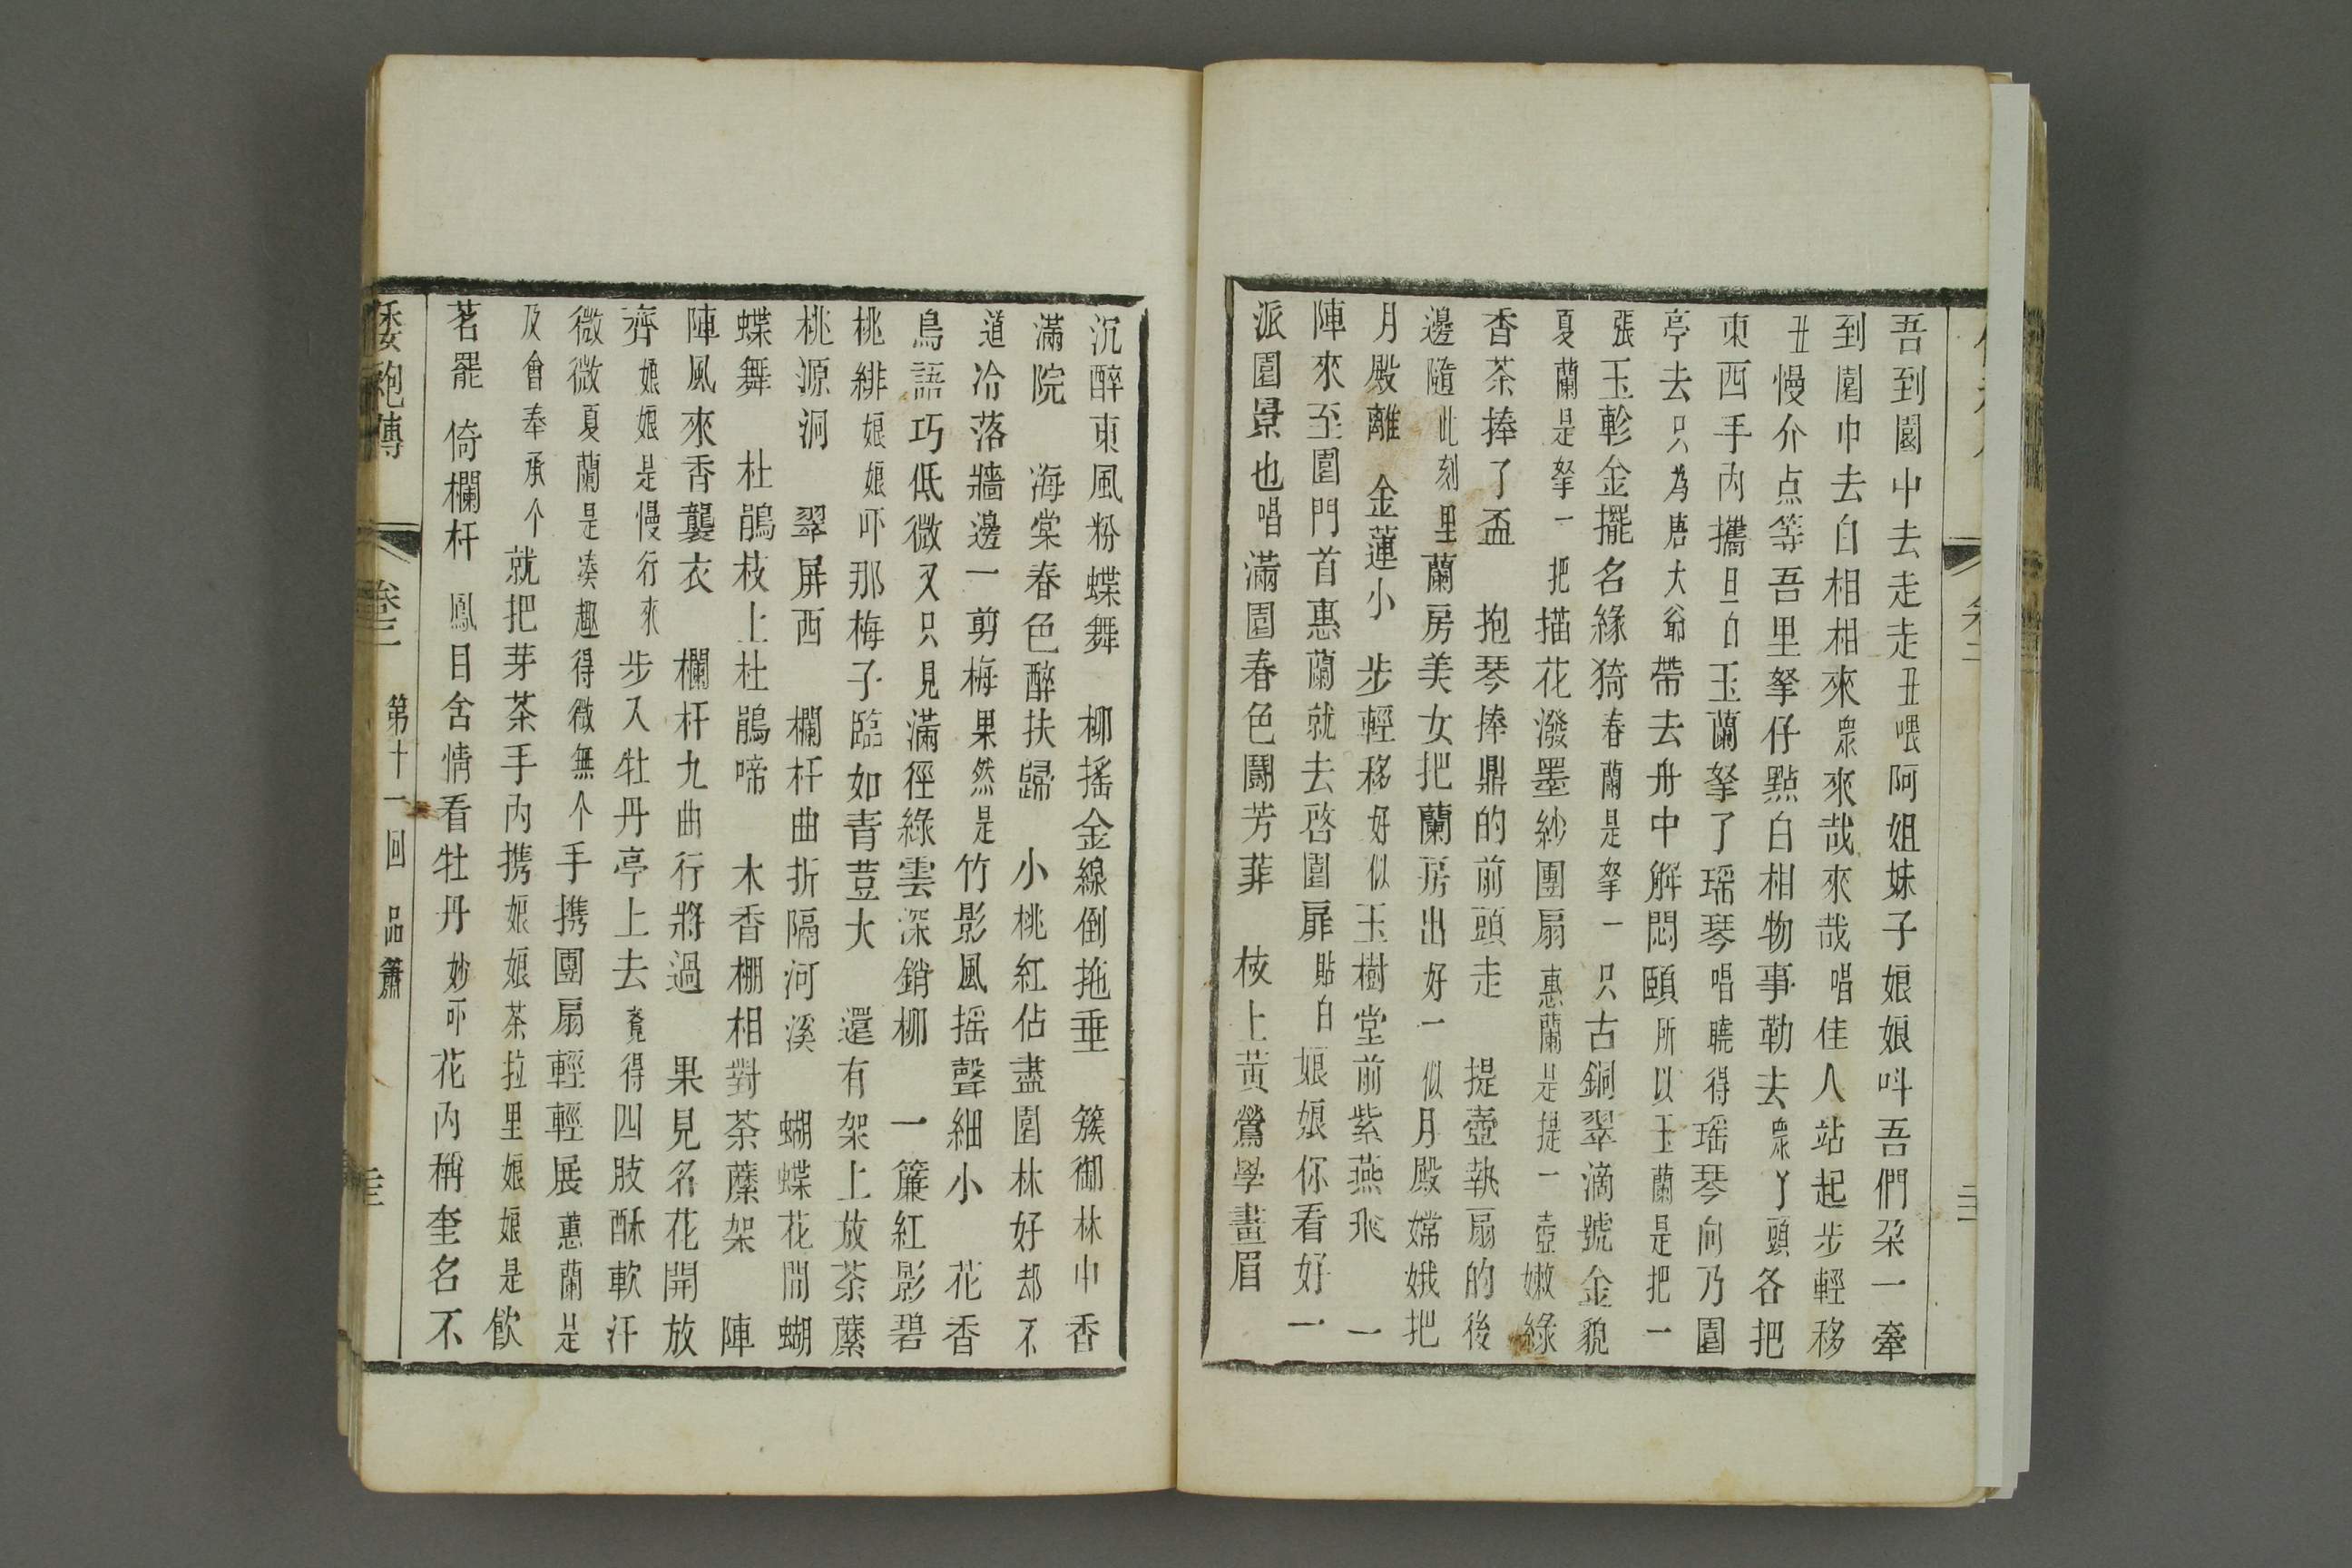 吾到園中去走走丑喂阿姐妹子娘娘呌吾們朶一牽
到園中去白相相來衆來哉來哉唱佳人站起步輕移
丑慢介点等吾里拏仔點白相物事勒去衆丫頭各把
東西手內攜旦白玉蘭拏了瑶琴唱曉得瑶琴向乃園
亭去只為唐大爺帶去舟中解悶頤所以玉蘭是把一
張玉軫金擺名緣猗春蘭是拏一只古銅翠滴號金貌
夏蘭是拏一把描花潑墨紗團扇惠蘭是提一壺嫩綠
香茶捧了盃 抱琴捧鼎的前頭走 提壺執扇的後
邊隨此刻里蘭房美女把蘭房出好一似月殿嫦娥把
月殿離 金蓮小 步輕移好似玉樹堂前紫燕飛 一
陣來至園門首惠蘭就去啓園扉貼白娘娘你看好一
派園景也唱滿園春色鬪芳菲 枝上黃鶯學畫眉
沉醉東風粉蝶舞 柳搖金線倒拖垂 簇御林中香
滿院 海棠春色醉扶歸 小桃紅佔盡園林好却不
道冷落牆邊一剪梅果然是竹影風搖聲細小 花香
鳥語巧低微又只見滿徑綠雲深銷柳 一簾紅影碧
桃緋娘娘吓那梅子臨如青荳大 還有架上放荼蘼
桃源洞 翠屏西 欄杆曲折隔河溪 蝴蝶花間蝴
蝶舞 杜鵑枝上杜鵑啼 木香棚相對荼蘼架 陣
陣風來香襲衣 欄杆九曲行將過 果見名花開放
齊娘娘是慢行來步入牡丹亭上去竟得四肢酥軟汗
微微夏蘭是凑趣得微無个手携團扇輕輕展蕙蘭是
及會奉承个就把芽茶手內携娘娘茶拉里娘娘是飲
茗罷 倚欄杆 鳳目含情看牡丹妙吓花內稱奎名不
倭袍傳 卷二 第十一回 品簫